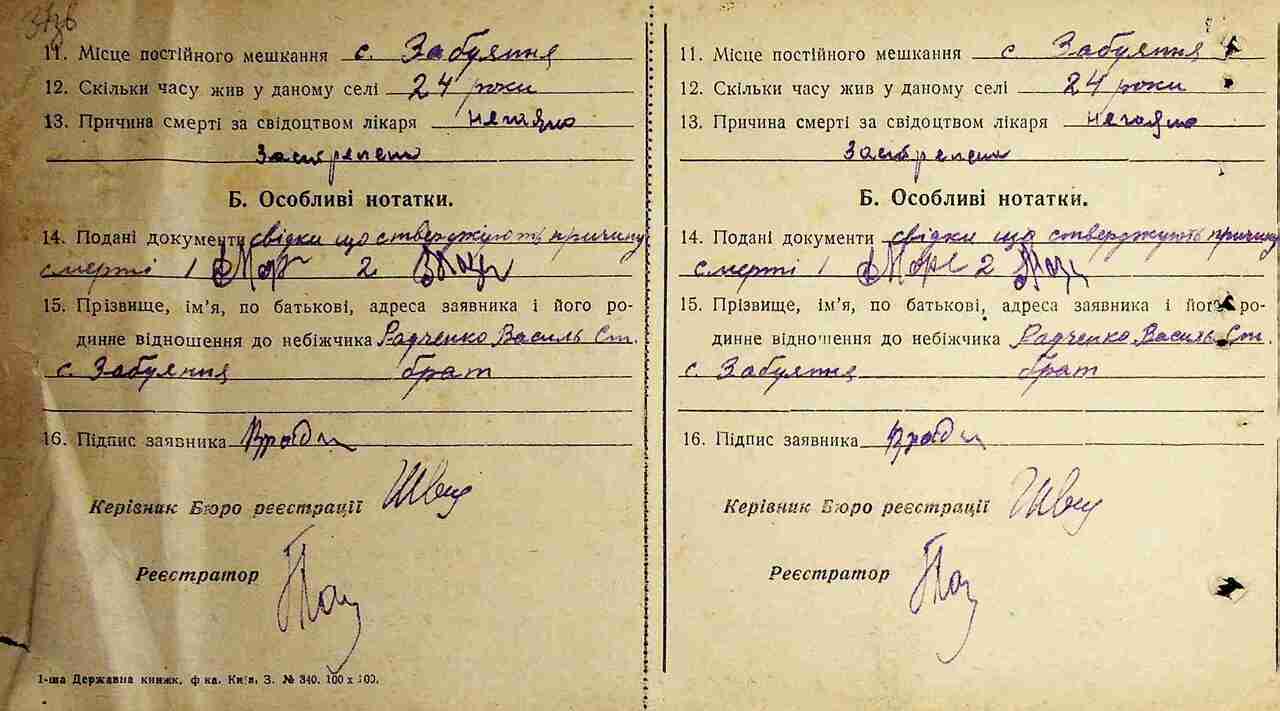 11. Місце постійного мешкання с. Забуяння
12. Скільки часу жив у даному селі 24 роки
13. Причина смерті за свідоцтвом лікаря
Б. Особливі нотатки.
14. Подані документи свідки що стверджують причину
смерті 1 2
15. Прізвище, ім’я, по батькові, адреса заявника і його ро-
динне відношення до небіжчика Радченко Василь Ст.
с. Забуяння брат
16. Підпис заявника
Керівник Бюро реєстрації
Реєстратор
1-ша Державна книжк. ф-ка. Київ. З. № 340. 100 x 100.
11. Місце постійного мешкання с Забуяння
12. Скільки часу жив у даному селі 24 роки
13. Причина смерті за свідоцтвом лікаря
Б. Особливі нотатки.
14. Подані документи свідки що стверджують причину
смерті 1 2
15. Прізвище, ім’я, по батькові, адреса заявника і його ро-
динне відношення до небіжчика Радченко Василь Ст.
с. Забуяння брат
16. Підпис заявника
Керівник Бюро реєстрації
Реєстратор